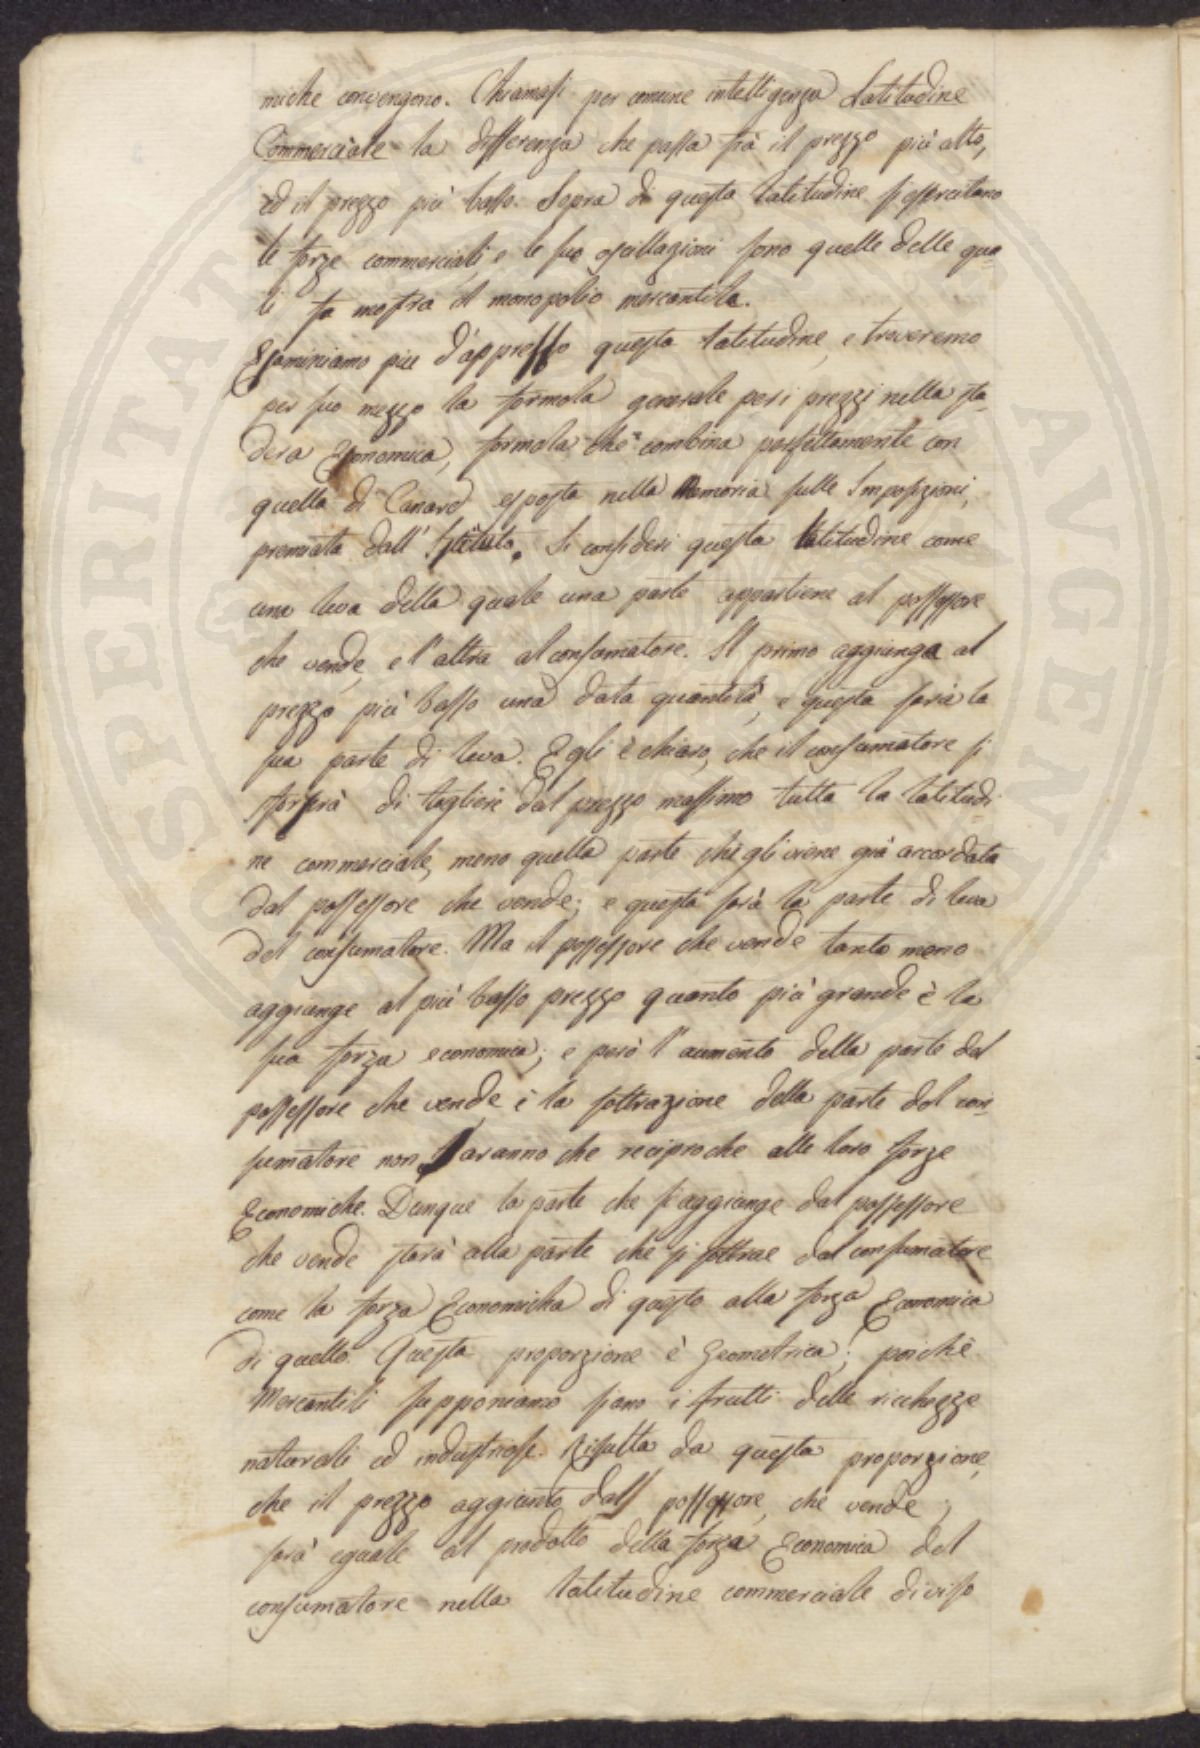 miche convengono. Chiamasi per comune intelligenza Latitudine
Commerciale la differenza che passa frà il prezzo più alto,
ed il prezzo più basso. Sopra di questa latitudine si esercitano
le forze commerciali, e le sue oscillazioni sono quelle delle qua=
li fa mostra il monopolio mercantile.
Esaminiamo più d'appresso questa latitudine, e troveremo
per suo mezzo la formola generale per i prezzi nella sta=
dera Economica, formola che combina perfettamente con
quella di Canard esposta nella Memoria sulle Imposizioni,
premiata dall'Istituto. Si consideri questa latitudine come
una leva della quale una parte appartiene al possessore
che vende, e l'altra al consumatore. Il primo aggiunga al
prezzo più basso una data quantità, e questa sarà la
sua parte di leva. Egli è chiaro, che il consumatore si
sforzerà di togliere dal prezzo massimo tutta la latitudi
ne commerciale, meno quella parte che gli viene già accordata
dal possessore che vende; e questa sarà la parte di leva
del consumatore. Ma il possessore che vende tanto meno
aggiunge al più basso prezzo quanto più grande è la
sua forza economica; e però l'aumento della parte del
possessore che vende, e la sottrazione della parte del con=
sumatore non saranno che reciproche alle loro forze
Economiche. Dunque la parte che si aggiunge dal possessore
che vende starà alla parte che si sottrae dal consumatore
come la forza Economicha di questo alla forza Economica
di quello. Questa proporzione è Geometrica; poichè
Mercantili supponiamo siano i frutti delle ricchezze
naturali ed industriose. Risulta da questa proporzione,
che il prezzo aggiunto dall possessore, che vende,
sarà eguale al prodotto della forza Economica del
consumatore nella latitudine commerciale diviso
SPERITATE
AVGEN